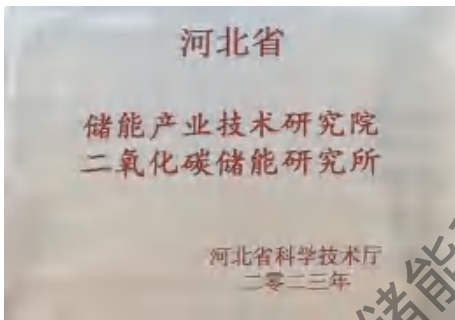 河北省
储能产业技术研究院
二氧化碳储能研究所
河北省科学技术厅
二零二三年
储能